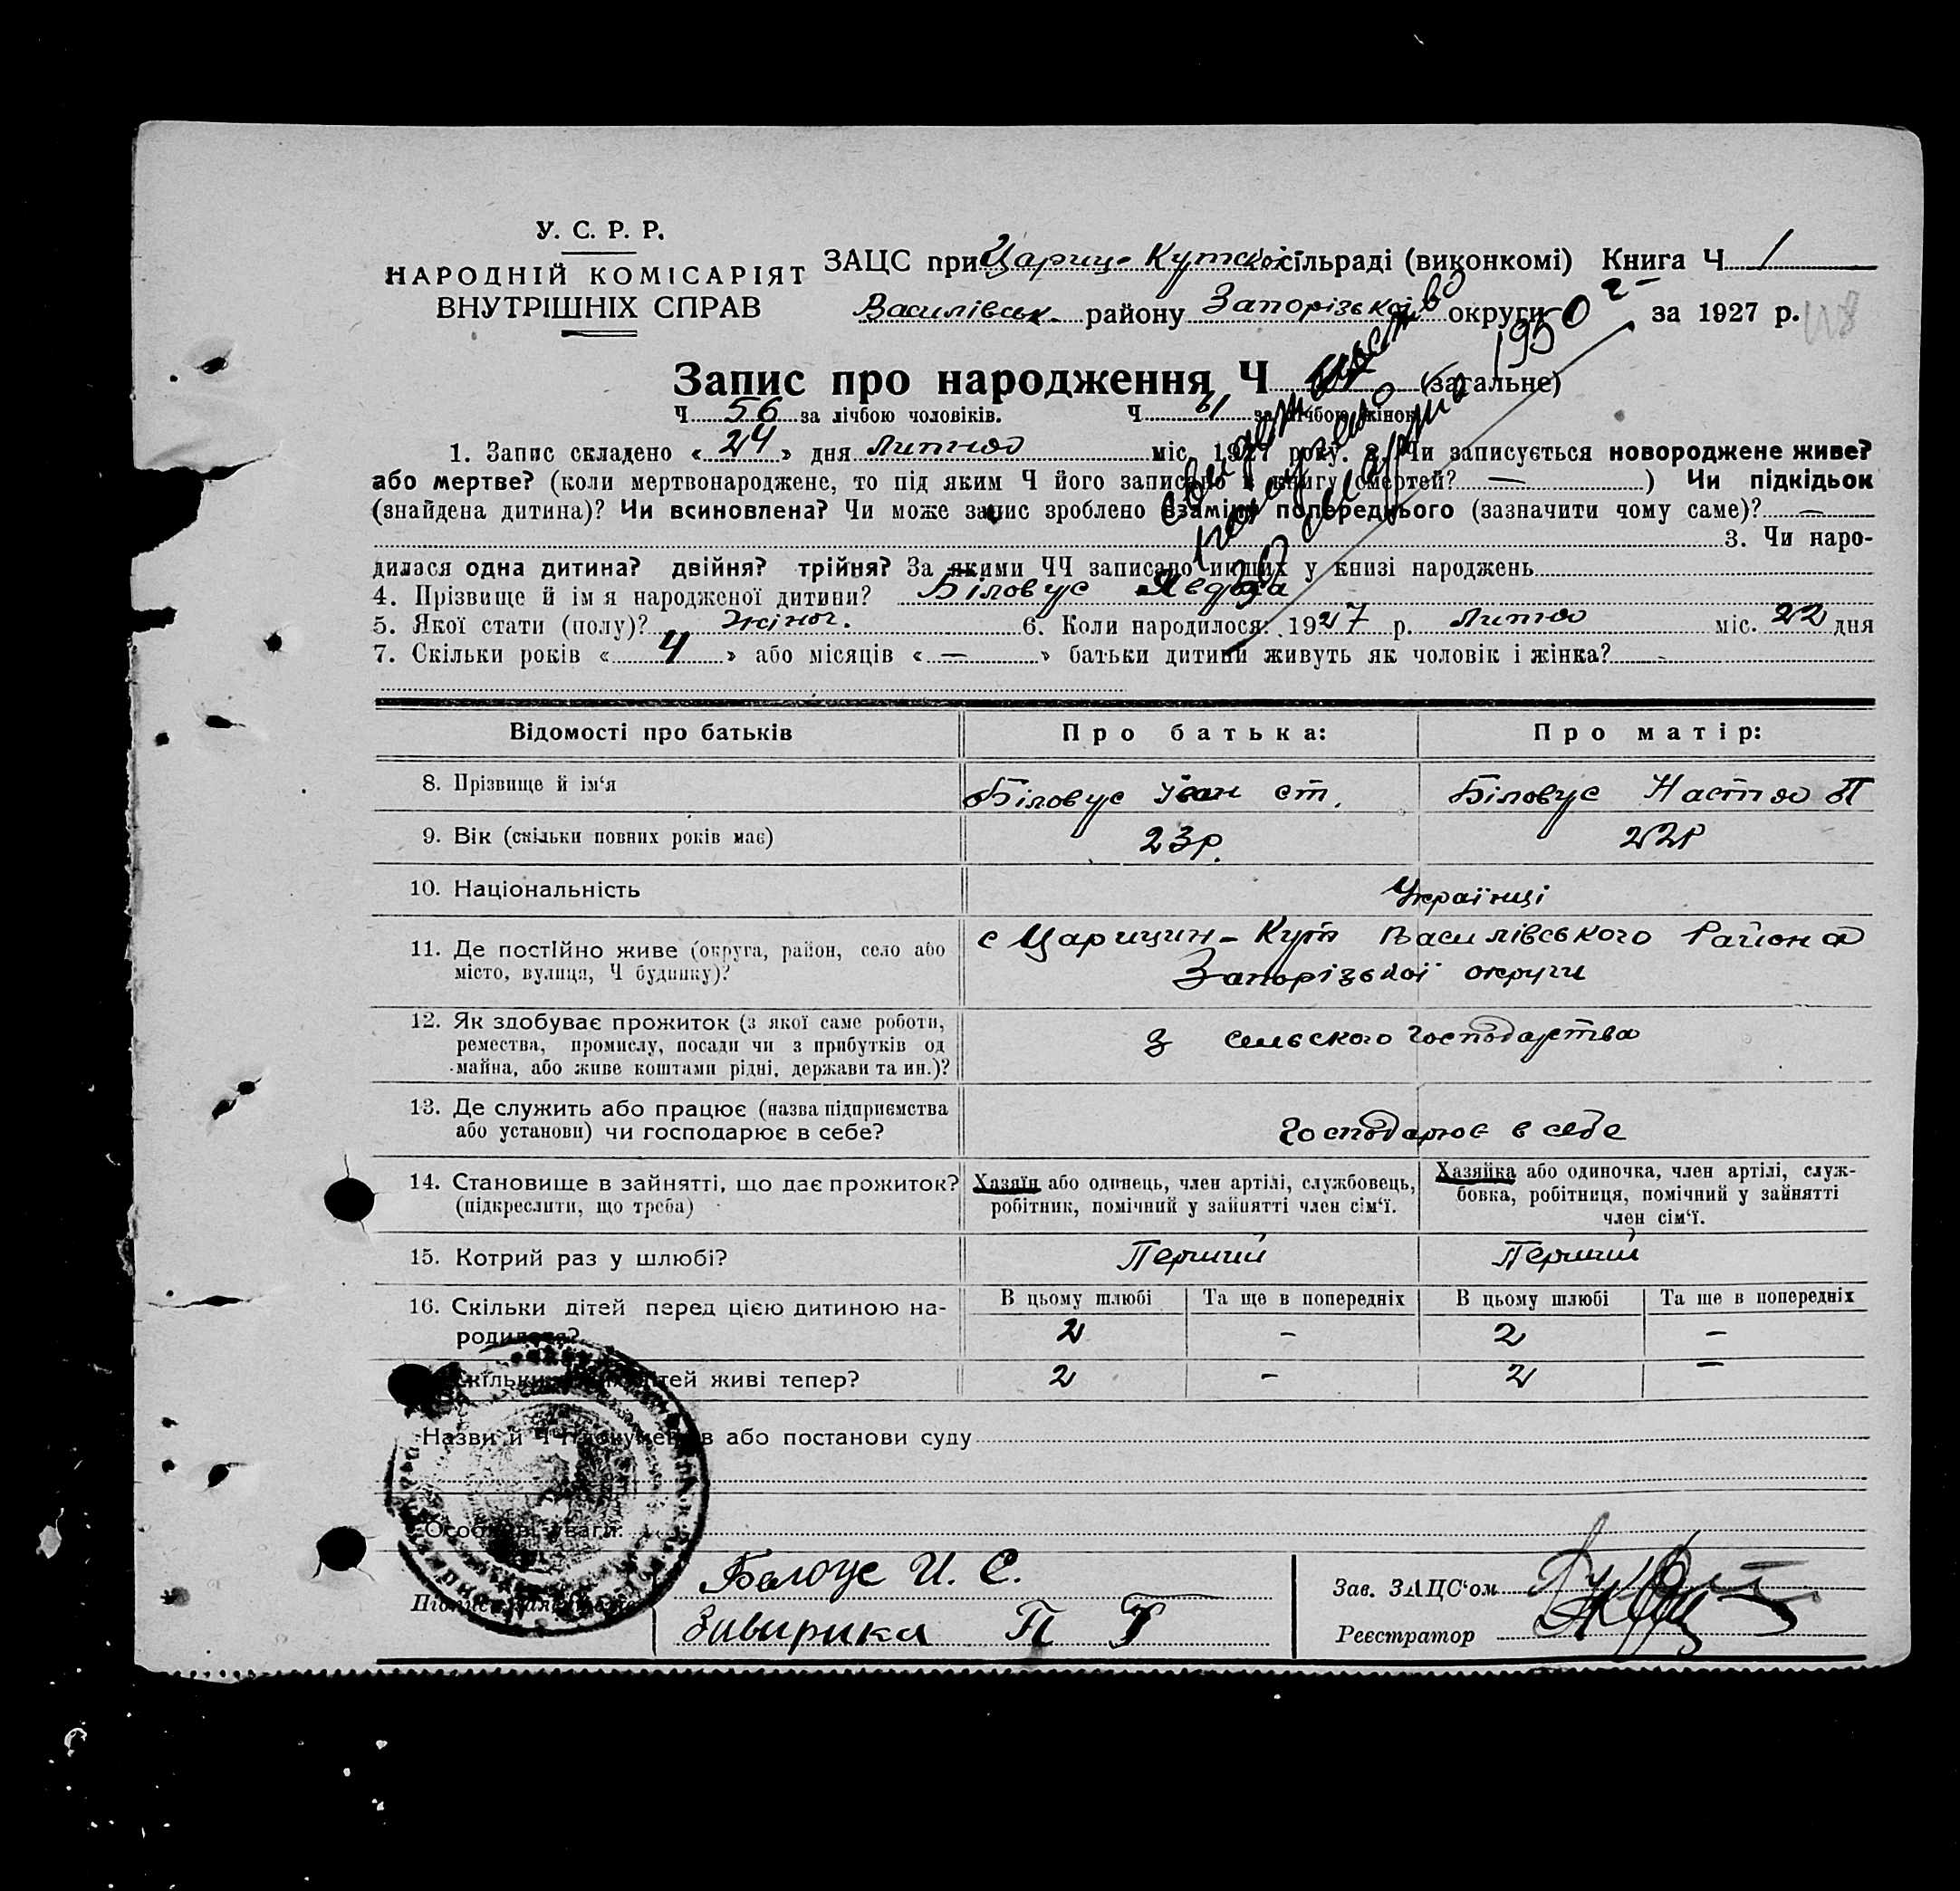 У. С. Р. Р.
НАРОДНІЙ КОМІСАРІЯТ
ВНУТРІШНІХ СПРАВ
ЗАЦС при Цариц-Кутській сільраді (виконкомі) Книга Ч 1
Василівськ. району Запорізької округи за 1927 р.
Запис про народження Ч (загальне)
Ч 56 за лічбою чоловіків. Ч 61 за лічбою жінок
свидетельство
1950 г
1. Запис складено « 24 » дня Лютня міс. 1927 року. 2. Чи записується новороджене живе?
або мертве? (коли мертвонароджене, то під яким Ч його записано в книгу смертей? — ) Чи підкідьок
(знайдена дитина)? Чи всиновлена? Чи може запис зроблено взаміну попереднього (зазначити чому саме)? —
3. Чи наро-
дилася одна дитина? двійня? трійня? За якими ЧЧ записано инших у книзі народжень
4. Прізвище й ім я народженої дитини? Біловус Явдоха
5. Якої стати (полу)? Жіноч. 6. Коли народилося: 1927 р. Лютня міс. 22 дня
7. Скільки років « 4 » або місяців « — » батьки дитини живуть як чоловік і жінка?
Відомості про батьків Про батька: Про матір:
8. Прізвище й ім‘я Біловус Іван Ст. Біловус Настя П
9. Вік (скільки повних років має) 23р. 22р
10. Національність Українці
11. Де постійно живе (округа, район, село або
місто, вулиця, Ч будинку)?
с Царицин-Кут Василівського Района
Запорізької округи
12. Як здобуває прожиток (з якої саме роботи,
ремества, промислу, посади чи з прибутків од
майна, або живе коштами рідні, держави та ин.)?
з сельского господарства
13. Де служить або працює (назва підприємства
або установи) чи господарює в себе?
господарює в себе
14. Становище в зайнятті, що дає прожиток?
(підкреслити, що треба)
Хазяїн або одинець, член артілі, службовець,
робітник, помічний у зайнятті член сім‘ї.
Хазяйка або одиночка, член артілі, служ-
бовка, робітниця, помічний у зайнятті
член сім‘ї.
15. Котрий раз у шлюбі? Перший Перший
16. Скільки дітей перед цією дитиною на-
родилося?
В цьому шлюбі Та ще в попередніх В цьому шлюбі Та ще в попередніх
2 – 2 –
Скільки дітей живі тепер? 2 – 2 –
Назви й Ч Ч документів або постанови суду
Особливі уваги:
Белоус И. С.
П Т
Зав. ЗАЦС‘ом
Реєстратор